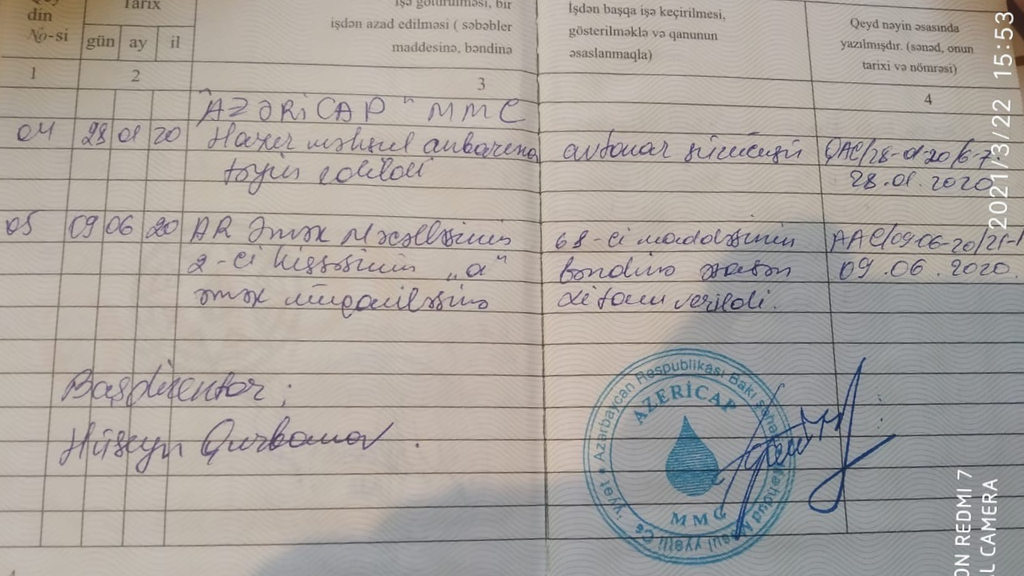 din
№-si
Tarix
gün ay il
İşə götürülməsi, bir
işdən azad edilməsi ( səbəblər
maddesinə, bəndinə
İşdən başqa işə keçirilmesi,
gösterilməklə və qanunun
əsaslanmaqla)
Qeyd nəyin əsasında
yazılmışdır. (sənəd, onun
tarixi və nömrəsi)
1 2 3 4
"AZƏRİCAP" MMC
04 28 01 20 Hazır məhsul anbarına avtokar sürücüsü QAC/28-01-20/6-7.
təyin edildi 28.01.2020
05 09 06 20 AR Əmək Məcəlləsinin 68-ci maddəsinin AAC/09-06-20/21-1
2-ci hissəsinin „a" bəndinə əsasən 09.06.2020.
əmək müqaviləsinə xitam verildi.
Başdirektor:
Hüseyn Qurbanov.
Azərbaycan Respublikası Bakı şəhəri
AZERİCAP
MMC
2021/3/22 15:53
ON REDMI 7
L CAMERA